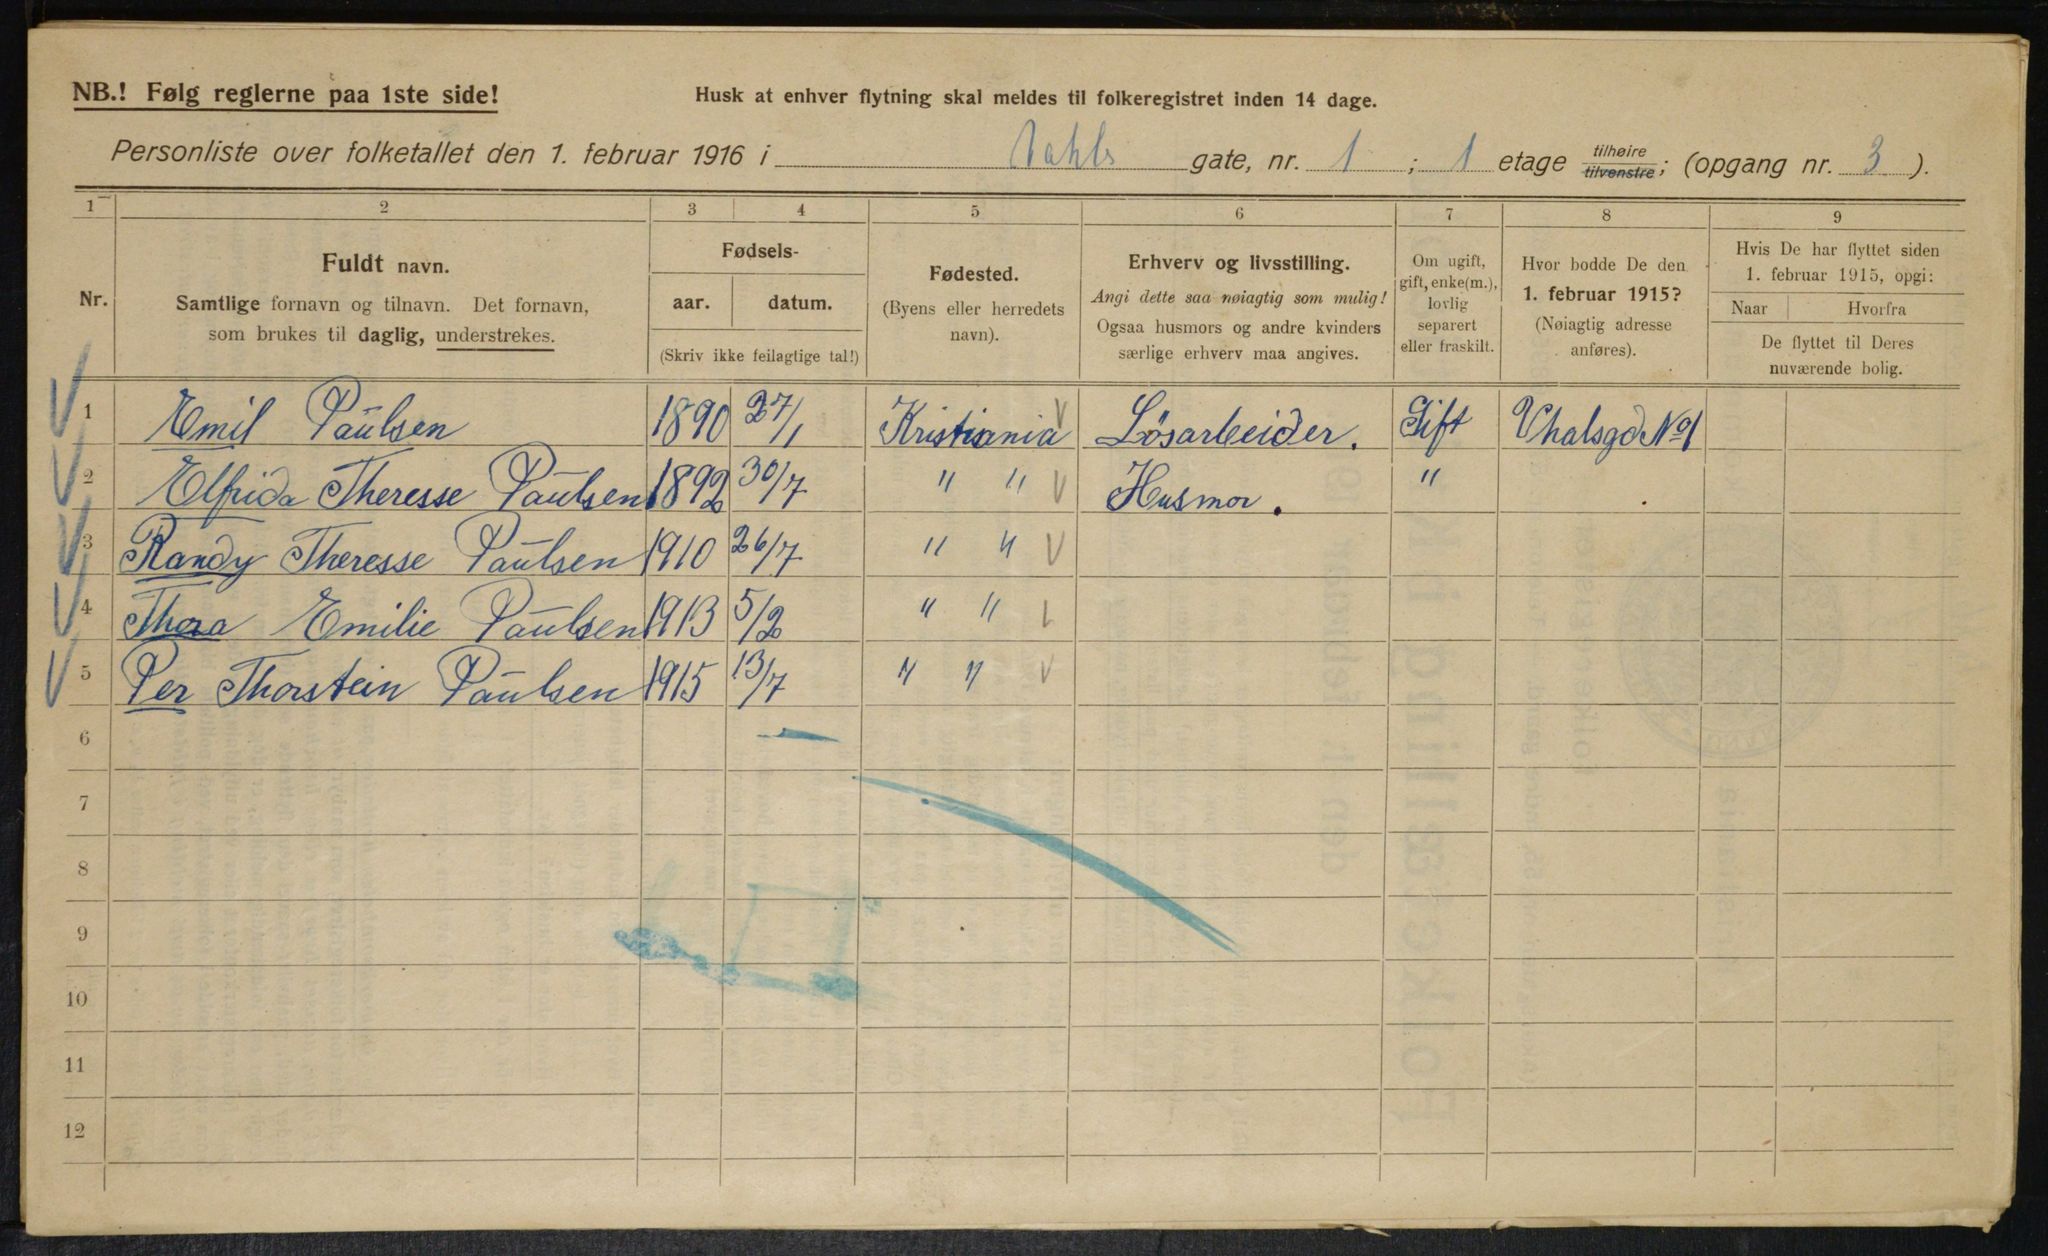 NB.! Følg reglerne paa 1ste side!
Husk at enhver flytning skal meldes til folkeregistret inden 14 dage.
Personliste over folketallet den 1. februar 1916 i Vahls gate, nr. 1 ; 1 etage tilhøire tilvenstre; (opgang nr. 3 ).
1 2 3 4 5 6 7 8 9
Nr.
Fuldt navn.
Samtlige fornavn og tilnavn. Det fornavn,
som brukes til daglig, understrekes.
Fødsels-
aar. datum.
(Skriv ikke feilagtige tal!)
Fødested.
(Byens eller herredets
navn).
Erhverv og livsstilling.
Angi dette saa nøiagtig som mulig!
Ogsaa husmors og andre kvinders
særlige erhverv maa angives.
Om ugift,
gift, enke(m.),
lovlig
separert
eller fraskilt.
Hvor bodde De den
1. februar 1915?
(Nøiagtig adresse
anføres).
Hvis De har flyttet siden
1. februar 1915, opgi:
Naar Hvorfra
De flyttet til Deres
nuværende bolig.
1 Emil Paulsen 1890 27/1 Kristiania Løsarbeider. Gift Vhalsgd No 1
2 Elfrida Theresse Paulsen 1892 30/7 " " Husmor. "
3 Randy Theresse Paulsen 1910 26/7 " "
4 Thora Emilie Paulsen 1913 5/2 " "
5 Per Thorstein Paulsen 1915 13/7 " "
6
7
8
9
10
11
12